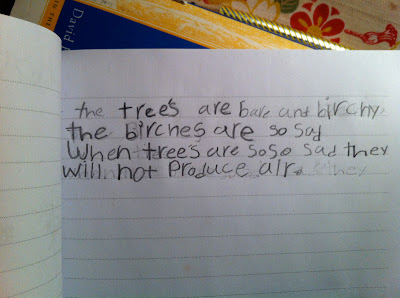 IN THE
David
the tree's are bare and birchy.
the birches are so sad
When tree's are soso sad they
will not Produce air.